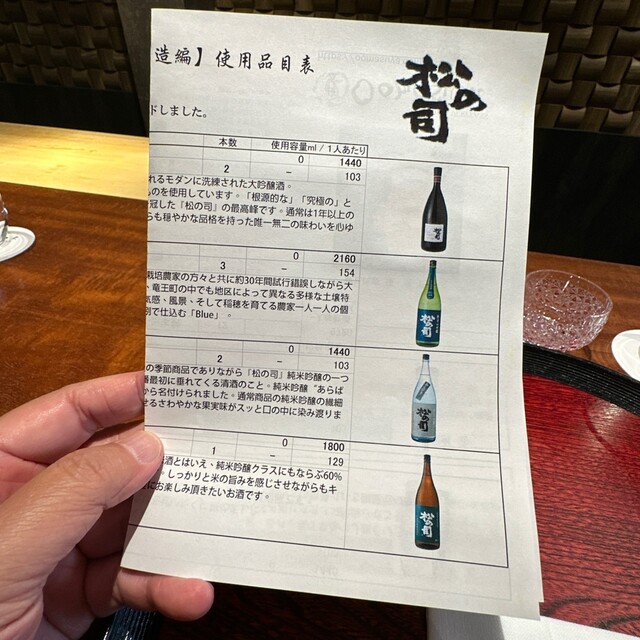 造編】使用品目表
松の司
ドしました。
本数 使用容量ml / 1人あたり
0 1440
2 – 103
れるモダンに洗練された大吟醸酒。
ものを使用しています。「根源的な」「究極の」と
冠した「松の司」の最高峰です。通常は1年以上の
らも穏やかな品格を持った唯一無二の味わいを心ゆ
0 2160
3 – 154
栽培農家の方々と共に約30年間試行錯誤しながら大
、竜王町の中でも地区によって異なる多様な土壌特
気感、風景、そして稲穂を育てる農家一人一人の個
別で仕込む「Blue」。
0 1440
2 – 103
の季節商品でありながら「松の司」純米吟醸の一つ
番最初に垂れてくる清酒のこと。純米吟醸“あらば
から名付けられました。通常商品の純米吟醸の繊細
せるさわやかな果実味がスッと口の中に染み渡りま
0 1800
1 – 129
酒とはいえ、純米吟醸クラスにもならぶ60%
、しっかりと米の旨みを感じさせながらもキ
にお楽しみ頂きたいお酒です。
松の司
松の司
松の司
松の司